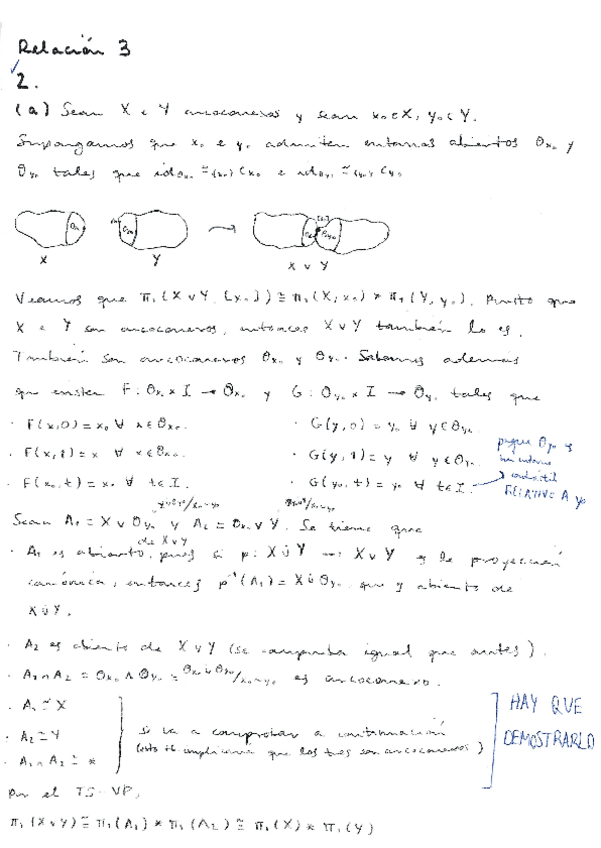 Relación 3
2.
(a) Sean X e Y arcoconexos y sean x₀∈X, y₀∈Y.
Supongamos que x₀ e y₀ admiten entornos abiertos Θx₀ y
Θy₀ tales que idΘx₀ ≃{x₀} Cx₀ e idΘy₀ ≃{y₀} Cy₀
X Y X ∨ Y
Veamos que π₁(X∨Y, [x₀]) ≅ π₁(X, x₀) * π₁(Y, y₀). Puesto que
X e Y son arcoconexos, entonces X∨Y también lo es.
También son arcoconexos Θx₀ y Θy₀. Sabemos además
que existen F: Θx₀ × I → Θx₀ y G: Θy₀ × I → Θy₀ tales que
· F(x,0) = x₀ ∀ x∈Θx₀. · G(y,0) = y₀ ∀ y∈Θy₀
· F(x,1) = x ∀ x∈Θx₀. · G(y,1) = y ∀ y∈Θy₀
· F(x₀,t) = x₀ ∀ t∈I. · G(y₀,t) = y₀ ∀ t∈I.
porque Θy₀ es
un entorno
contráctil
RELATIVO A y₀
Sean A₁ = X ∨ Θy₀ y A₂ = Θx₀ ∨ Y. Se tiene que
de X∨Y
· A₁ es abierto, pues si p: X ∪̇ Y → X∨Y es la proyección
canónica, entonces p⁻¹(A₁) = X ∪̇ Θy₀ que es abierto de
X ∪̇ Y.
· A₂ es abierto de X∨Y (se comprueba igual que antes).
· A₁∩A₂ = Θx₀ ∨ Θy₀ = Θx₀ ∪̇ Θy₀/x₀~y₀ es arcoconexo.
· A₁ ≃ X
· A₂ ≃ Y
· A₁∩A₂ ≃ *
se va a comprobar a continuación
(esto te implicaría que los tres son arcoconexos)
HAY QUE
DEMOSTRARLO
Por el TS-VP,
π₁(X∨Y) ≅ π₁(A₁) * π₁(A₂) ≅ π₁(X) * π₁(Y)